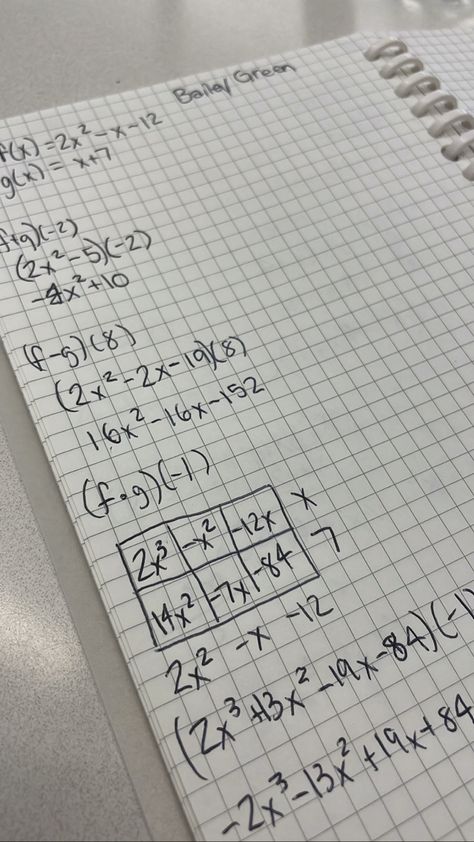 Bailey Green
f(x) = 2x² - x - 12
g(x) = x + 7
(f+g)(-2)
(2x² - 5)(-2)
-4x² + 10
(f - g)(8)
(2x² - 2x - 19)(8)
16x² - 16x - 152
(f • g)(-1)
2x³ -x² -12x x
14x² -7x -84 7
2x² -x -12
(2x³ + 13x² - 19x - 84)(-1)
-2x³ - 13x² + 19x + 84